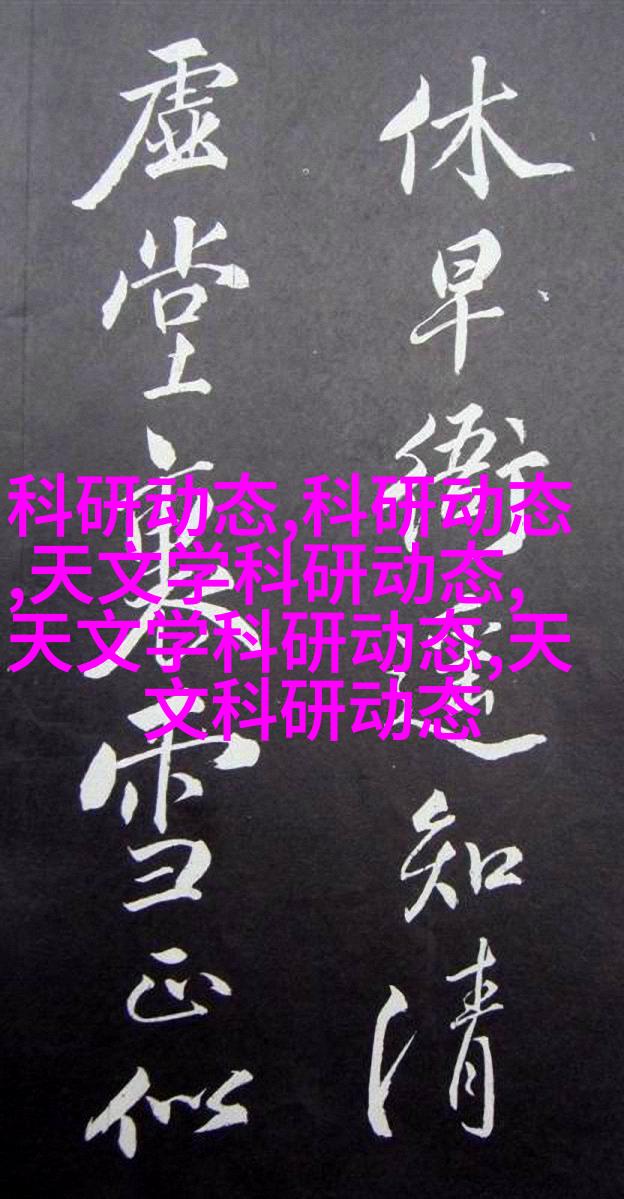 休早衙遥知清
虚堂暮雪正似
科研动态,科研动态
,天文学科研动态,
天文学科研动态,天
文科研动态